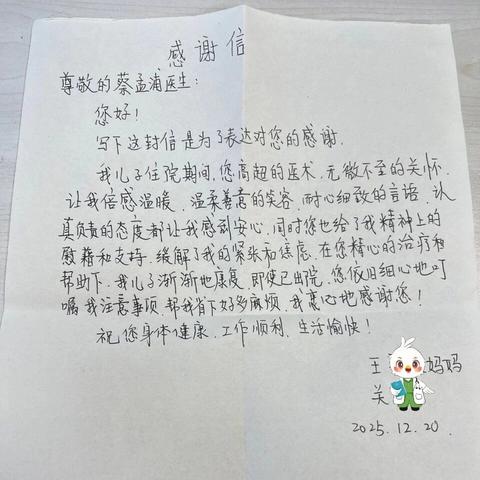 感谢信
尊敬的蔡孟浦医生：
您好！
写下这封信是为了表达对您的感谢.
我儿子住院期间,您高超的医术、无微不至的关怀、
让我倍感温暖、温柔善意的笑容、耐心细致的言语、认
真负责的态度都让我感到安心,同时您也给了我精神上的
慰藉和支持、缓解了我的紧张和焦虑.在您精心的治疗和
帮助下、我儿子渐渐地康复,即使已出院、您依旧细心地叮
嘱我注意事项、帮我省下好多麻烦、我衷心地感谢您！
祝您身体健康、工作顺利、生活愉快！
王 妈妈
关
2025.12.20.